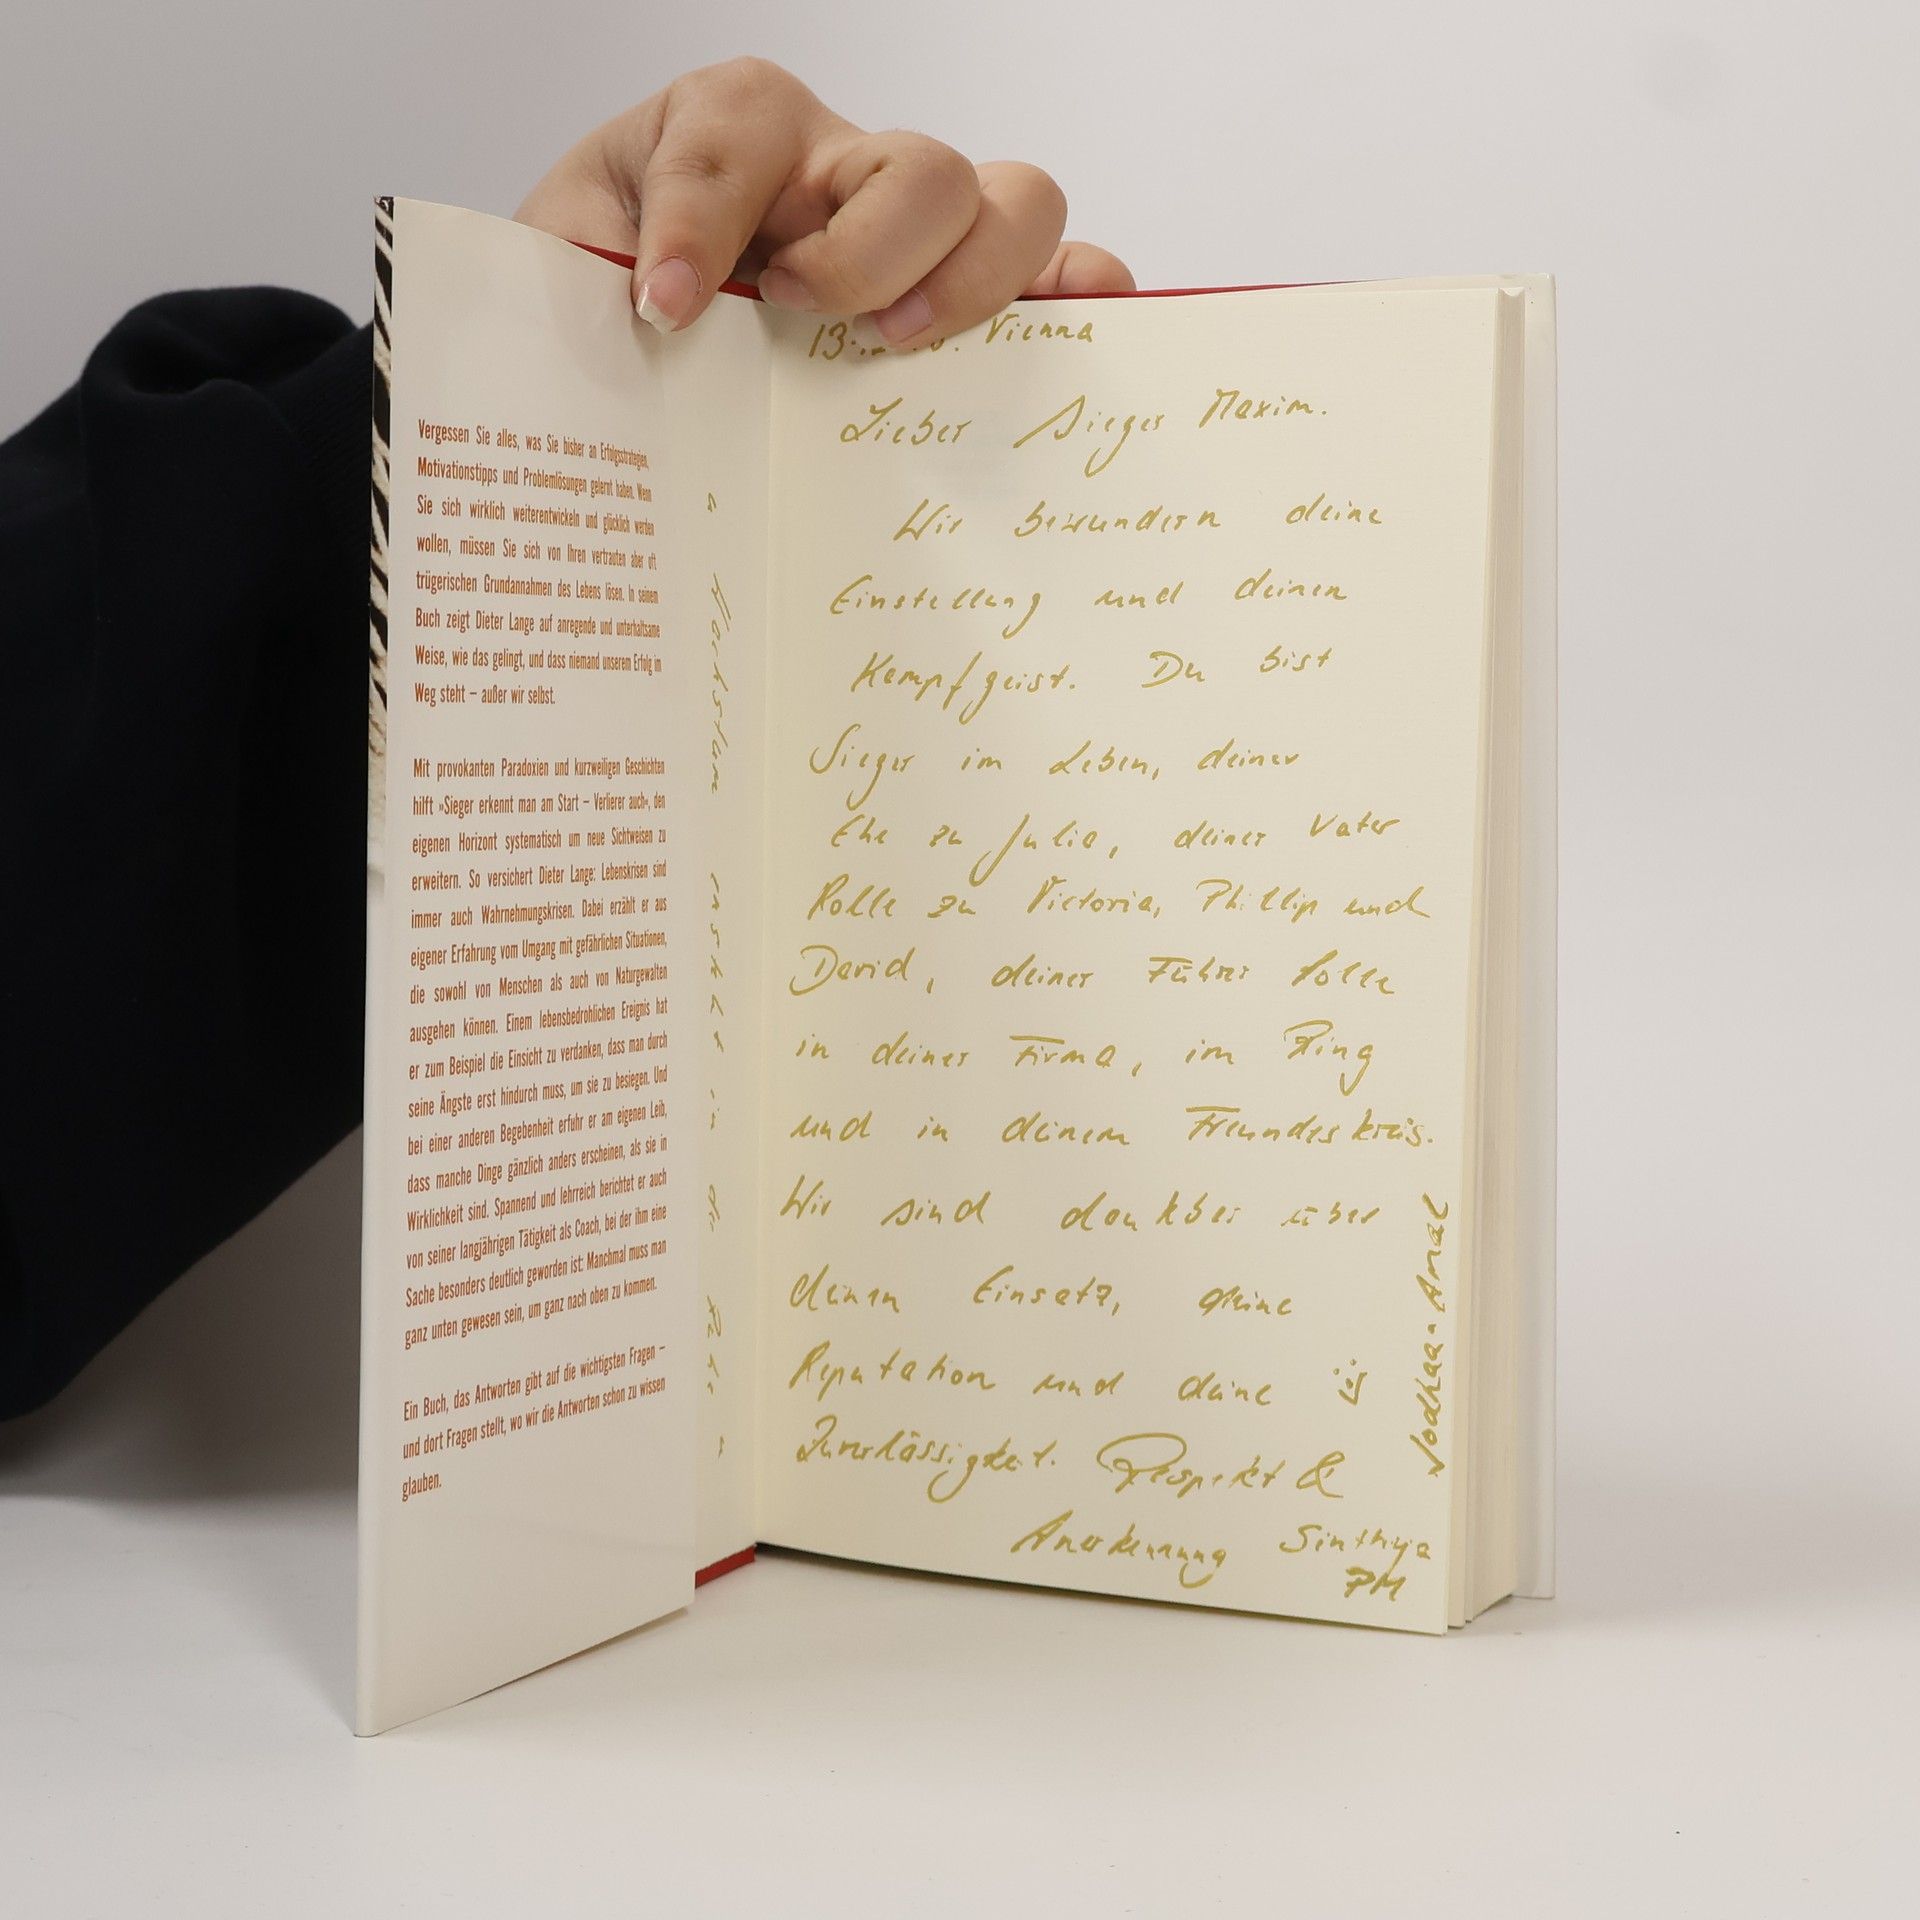 Vergessen Sie alles, was Sie bisher an Erfolgsstrategien,
Motivationstipps und Problemlösungen gelernt haben. Wenn
Sie sich wirklich weiterentwickeln und glücklich werden
wollen, müssen Sie sich von Ihren vertrauten aber oft
trügerischen Grundannahmen des Lebens lösen. In seinem
Buch zeigt Dieter Lange auf anregende und unterhaltsame
Weise, wie das gelingt, und dass niemand unserem Erfolg im
Weg steht – außer wir selbst.
Mit provokanten Paradoxien und kurzweiligen Geschichten
hilft »Sieger erkennt man am Start – Verlierer auch«, den
eigenen Horizont systematisch um neue Sichtweisen zu
erweitern. So versichert Dieter Lange: Lebenskrisen sind
immer auch Wahrnehmungskrisen. Dabei erzählt er aus
eigener Erfahrung vom Umgang mit gefährlichen Situationen,
die sowohl von Menschen als auch von Naturgewalten
ausgehen können. Einem lebensbedrohlichen Ereignis hat
er zum Beispiel die Einsicht zu verdanken, dass man durch
seine Ängste erst hindurch muss, um sie zu besiegen. Und
bei einer anderen Begebenheit erfuhr er am eigenen Leib,
dass manche Dinge gänzlich anders erscheinen, als sie in
Wirklichkeit sind. Spannend und lehrreich berichtet er auch
von seiner langjährigen Tätigkeit als Coach, bei der ihm eine
Sache besonders deutlich geworden ist: Manchmal muss man
ganz unten gewesen sein, um ganz nach oben zu kommen.
Ein Buch, das Antworten gibt auf die wichtigsten Fragen –
und dort Fragen stellt, wo wir die Antworten schon zu wissen
glauben.
Wachstum in der
Vienna
Lieber Sieger Maxim.
Wir bewundern deine
Einstellung und deinen
Kampfgeist. Du bist
Sieger im Leben, deiner
Ehe zu Julia, deiner Vater
Rolle zu Victoria, Phillip und
David, deiner Führer Rolle
in deiner Firma, im Ring
und in deinem Freundeskreis.
Wir sind dankbar über
deinen Einsatz, deine
Reputation und deine
Zuverlässigkeit. Respekt &
Anerkennung Sinthya
PM
Jodhaa-Amal